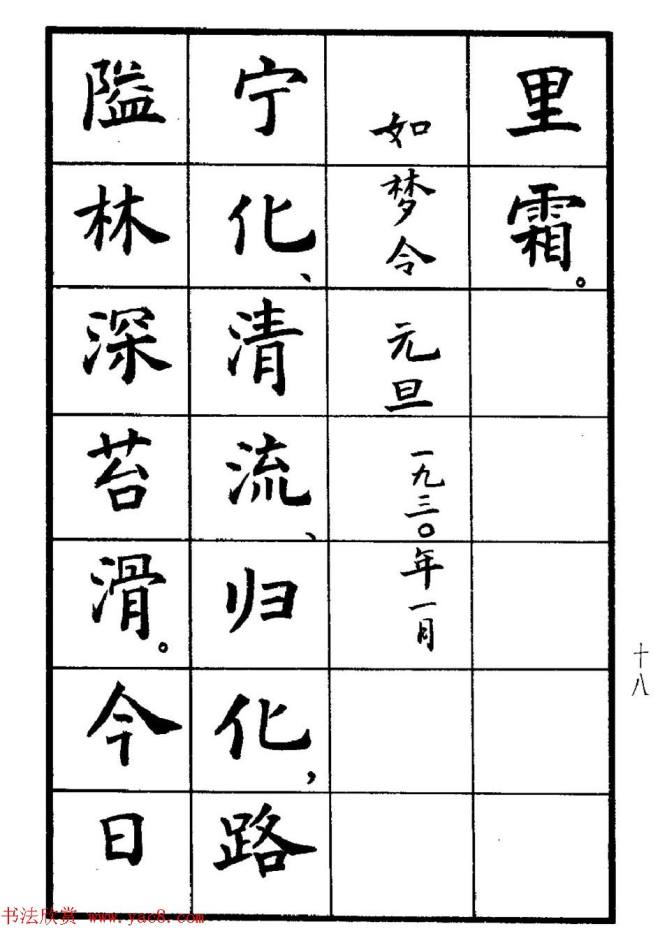 里霜。
如梦令 元旦 一九三〇年一月
宁化、清流、归化，路
隘林深苔滑。今日
十八
书法欣赏 www.yac8.com